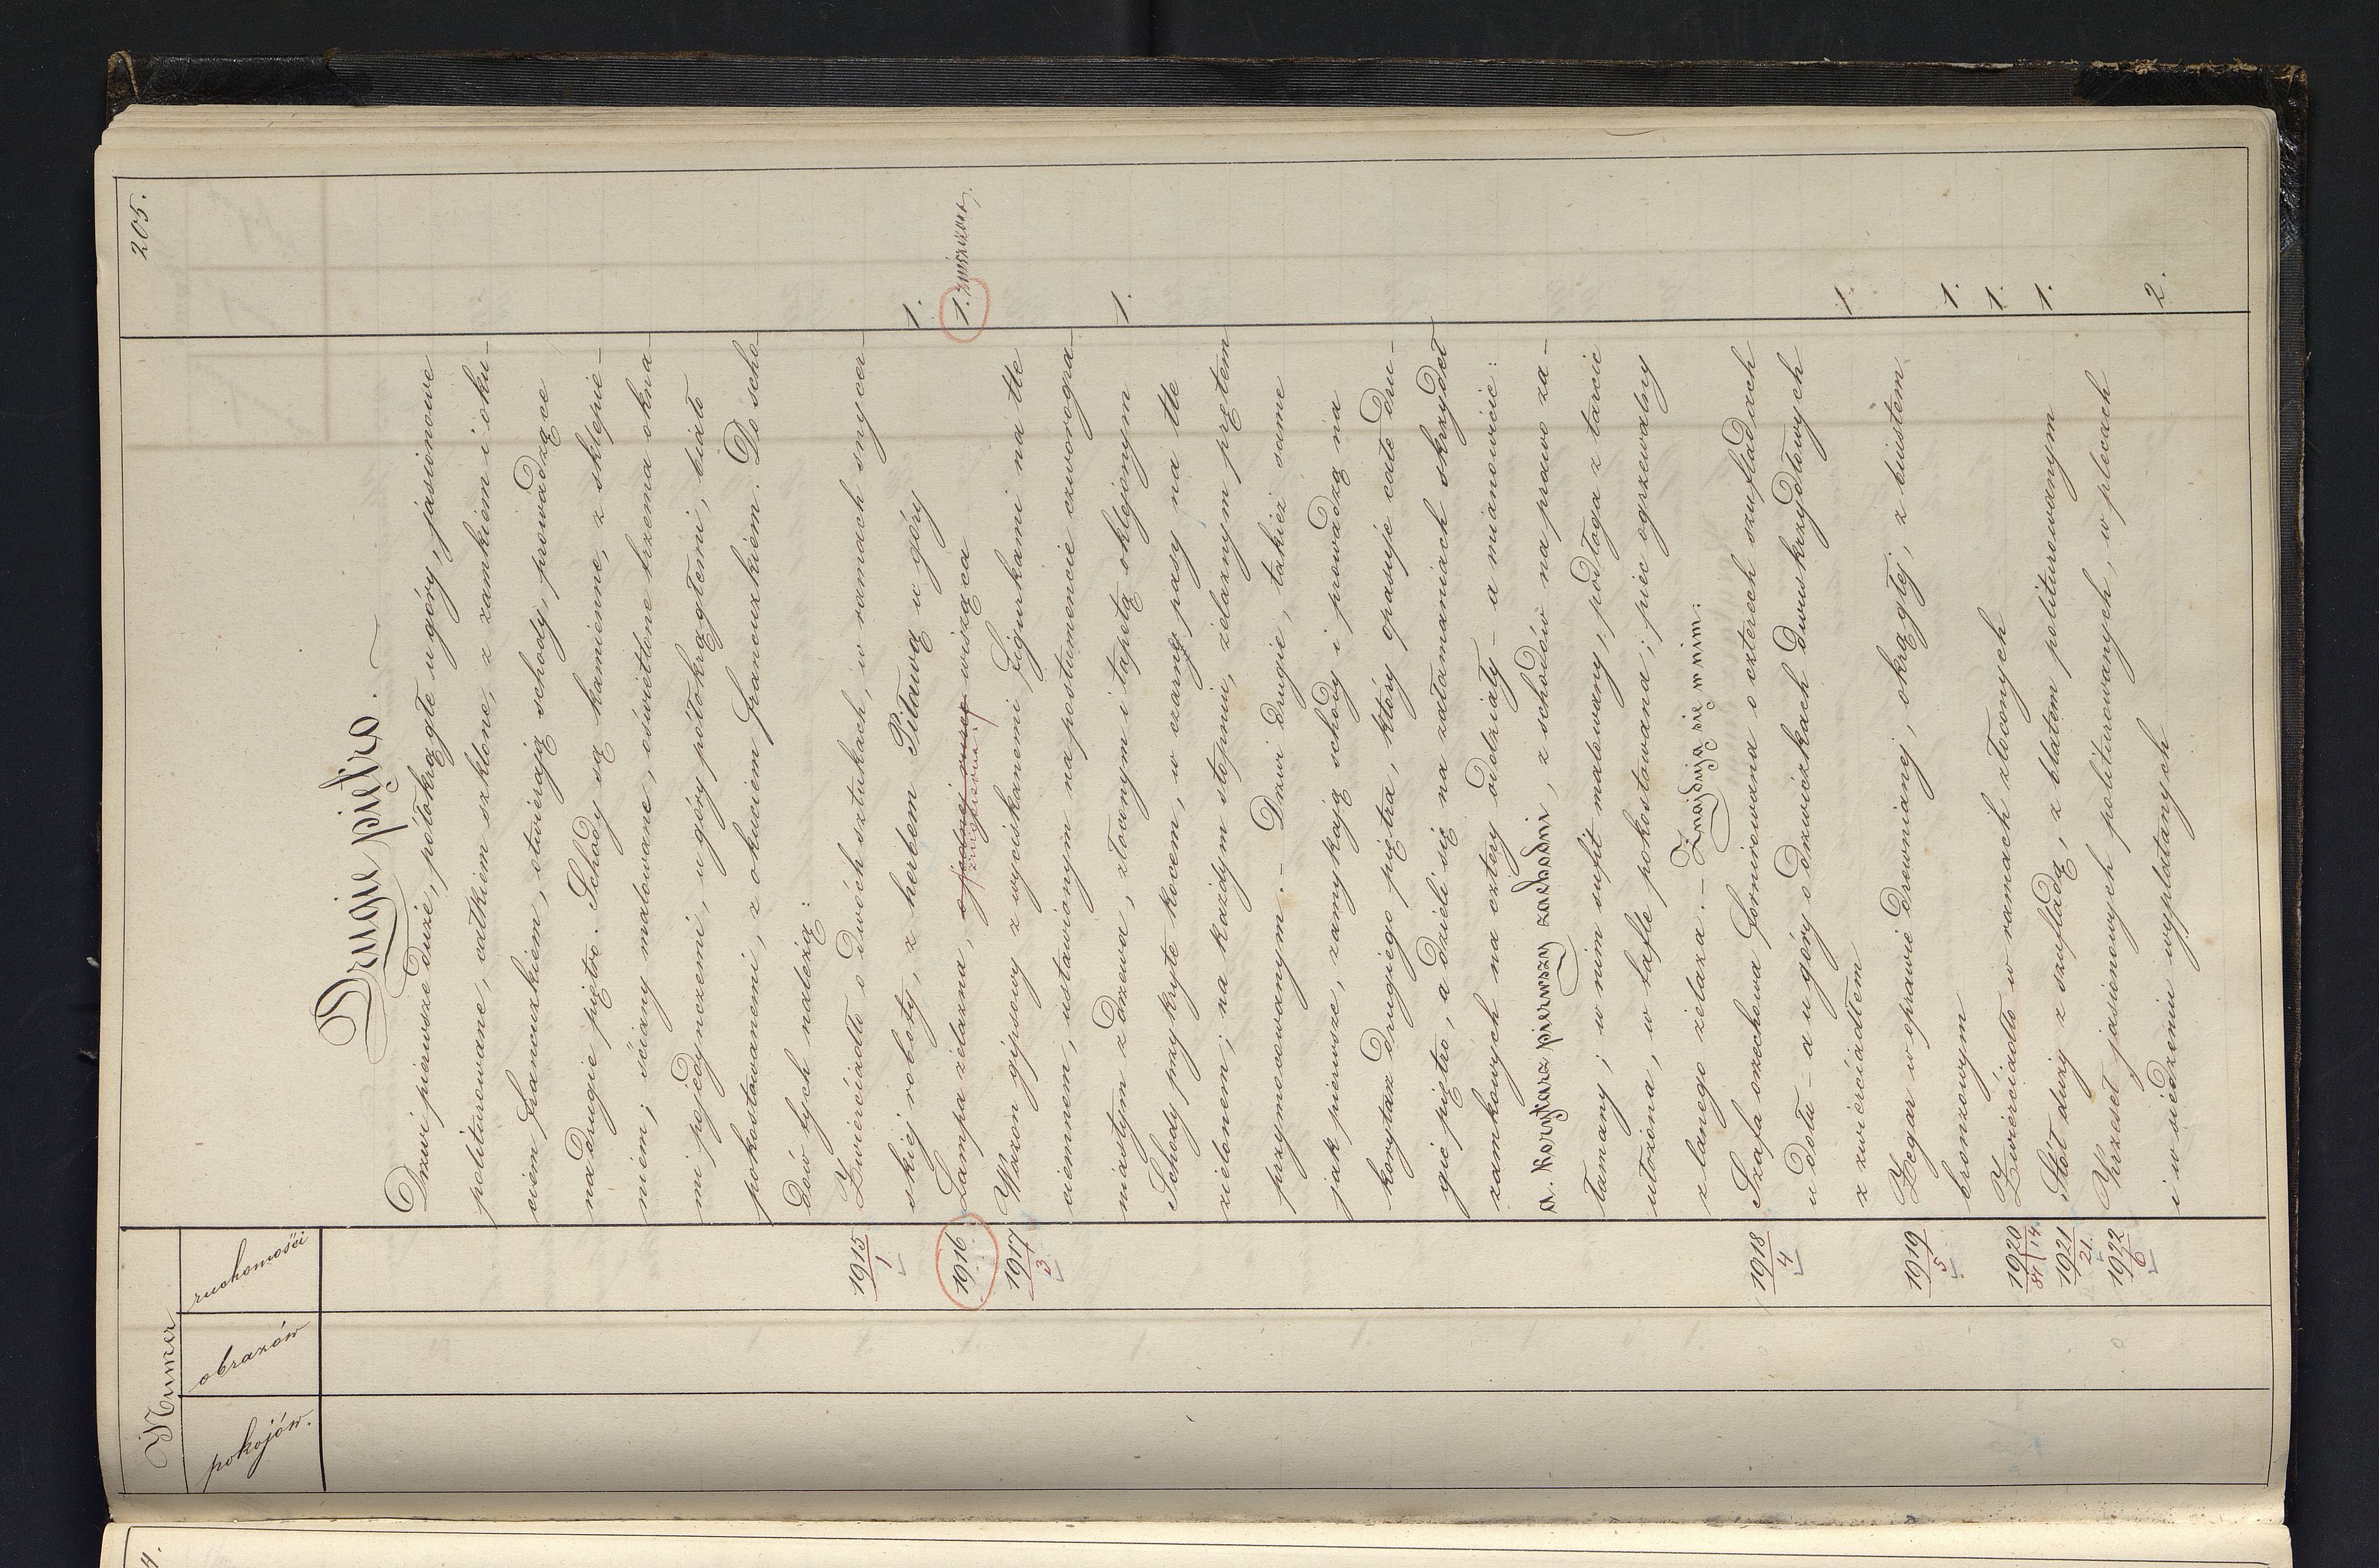 205.
Numer
pokojów.
obrazów
ruchomości
Drugie piętro.
Drzwi pierwsze duże, półokrągłe u góry, jasionowe
politurowane, całkiem szklone, z zamkiem i oku-
ciem francuzkiem, otwierają schody, prowadzące
na drugie piętro. Schody są kamienne, z sklepie-
niem; ściany malowane, oświetlone trzema okna-
mi pojedynczemi, u góry półokrągłemi, biało
pokostowanemi, z okuciem francuzkiem. Do scho-
dów tych należą:
1915/1 Zwierciadło o dwóch sztukach, w ramach snycer-
skiej roboty, z herbem Pilawą u góry 1.
1916 Lampa żelazna, o jednej świecy wisząca 1. zniszczona
zmieniona
1917/3 Wazon gipsowy z wyciskanemi figurkami na tle
ciemnem, ustawionym na postumencie czworogra-
niastym z drzewa, złoconym i tapetą oklejonym 1.
Schody przykryte kocem, w czarne pasy na tle
zielonem; na każdym stopniu, żelaznym prętem
przymocowanym. - Drzwi drugie, takież same
jak pierwsze, zamykają schody i prowadzą na
korytarz drugiego piętra, który opasuje całe dru-
gie piętro, a dzieli się na załamaniach skrzydeł
zamkowych na cztery oddziały - a mianowicie:
a. Korytarz pierwszy zachodni, z schodów na prawo za-
łamany; w nim sufit malowany, podłoga z tarcic
ułożona, w tafle pokostowana; piec ogrzewalny
z lanego żelaza. - Znajdują się w nim:
1918/4 Szafa orzechowa fornirowana o czterech szufladach
u dołu - a u góry o drzwiczkach dwuskrzydłowych
z zwierciadłem 1.
1919/5 Zegar w oprawie drewnianej, okrągłej, z biustem
bronzowym 1.
1920 Zwierciadło w ramach złoconych 1.
1921/21 Stół duży z szufladą, z blatem politurowanym 1.
1922/6 Krzeseł jasionowych politurowanych, w plecach
i w siedzeniu wyplatanych 2.